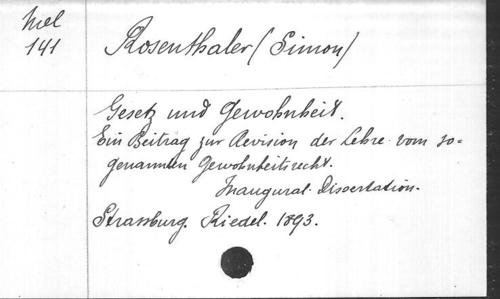 Mel
141
Rosenthaler (Simon)
Gesetz und Gewohnheit.
Ein Beitrag zur Revision der Lehre vom so-
genannten Gewohnheitsrecht.
Inaugural. Dissertation.
Strassburg. Riedel. 1893.